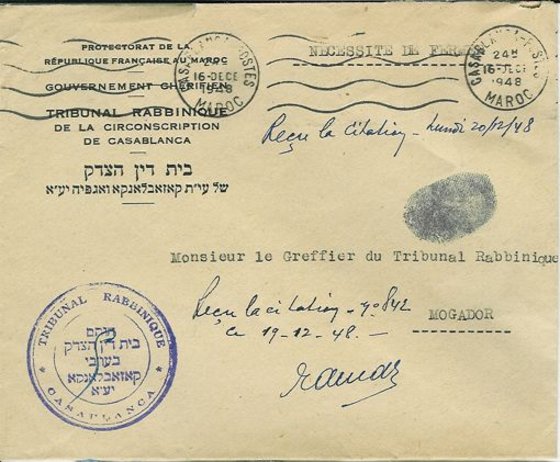 PROTECTORAT DE LA
RÉPUBLIQUE FRANÇAISE AU MAROC
GOUVERNEMENT CHÉRIFIEN
TRIBUNAL RABBINIQUE
DE LA CIRCONSCRIPTION
DE CASABLANCA
בית דין הצדק
של עי״ת קאזאבלאנקא ואגפיה יע״א
CASABLANCA-POSTES
16-DECE
1948
MAROC
NECESSITE DE
CASABLANCA-POSTES
24H
16-DECE
1948
MAROC
Reçu la Citation - Lundi 20/12/48
Monsieur le Greffier du Tribunal Rabbinique
MOGADOR
Reçu la citation - nº 842
ce 19-12-48 -
TRIBUNAL RABBINIQUE
בית דין הצדק
קאזאבלאנקא
יע״א
CASABLANCA